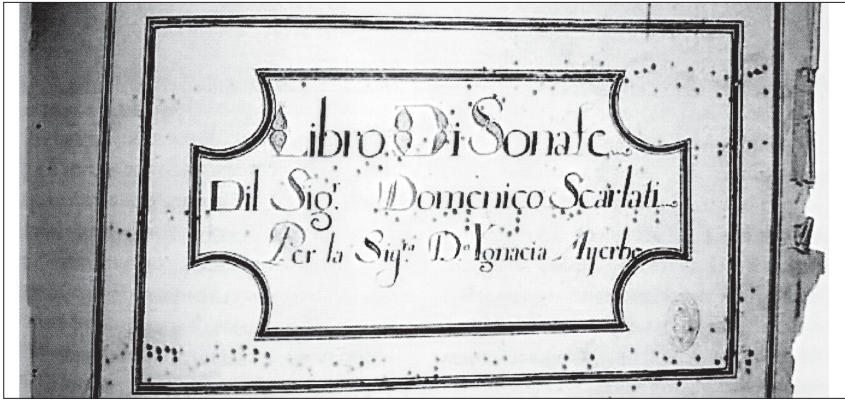 Libro Di Sonate
Dil Sig.r Domenico Scarlati
Per la Sig.ra D.a Ygnacia Ayerbe